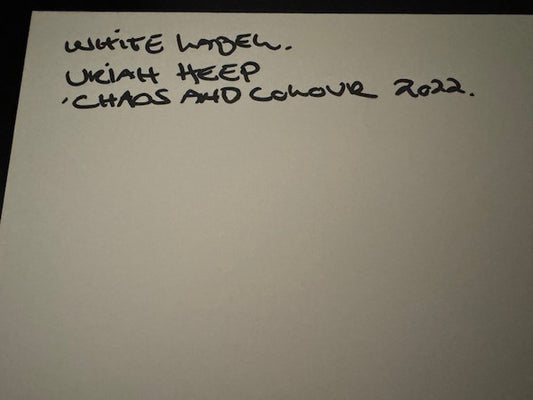 WHITE LABEL.
URIAH HEEP
'CHAOS AND COLOUR 2022.